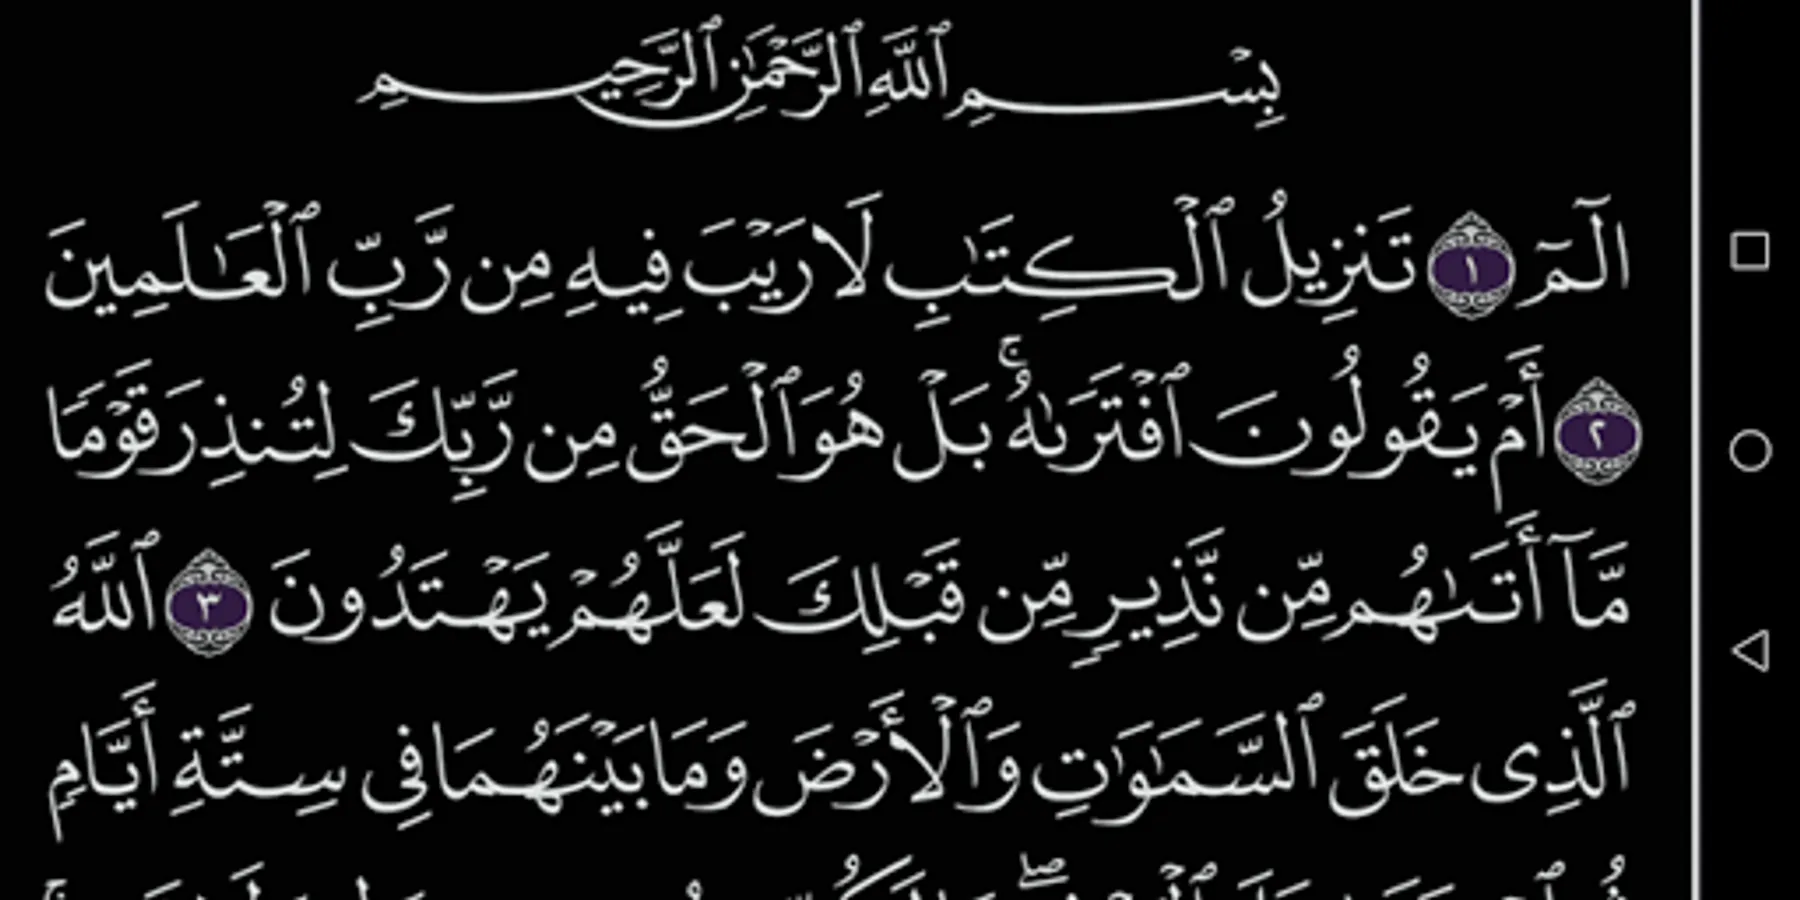 بِسْمِ ٱللَّهِ ٱلرَّحْمَٰنِ ٱلرَّحِيمِ
الٓمٓ ١ تَنزِيلُ ٱلْكِتَٰبِ لَا رَيْبَ فِيهِ مِن رَّبِّ ٱلْعَٰلَمِينَ
٢ أَمْ يَقُولُونَ ٱفْتَرَىٰهُ ۚ بَلْ هُوَ ٱلْحَقُّ مِن رَّبِّكَ لِتُنذِرَ قَوْمًا
مَّآ أَتَىٰهُم مِّن نَّذِيرٍ مِّن قَبْلِكَ لَعَلَّهُمْ يَهْتَدُونَ ٣ ٱللَّهُ
ٱلَّذِى خَلَقَ ٱلسَّمَٰوَٰتِ وَٱلْأَرْضَ وَمَا بَيْنَهُمَا فِى سِتَّةِ أَيَّامٍ